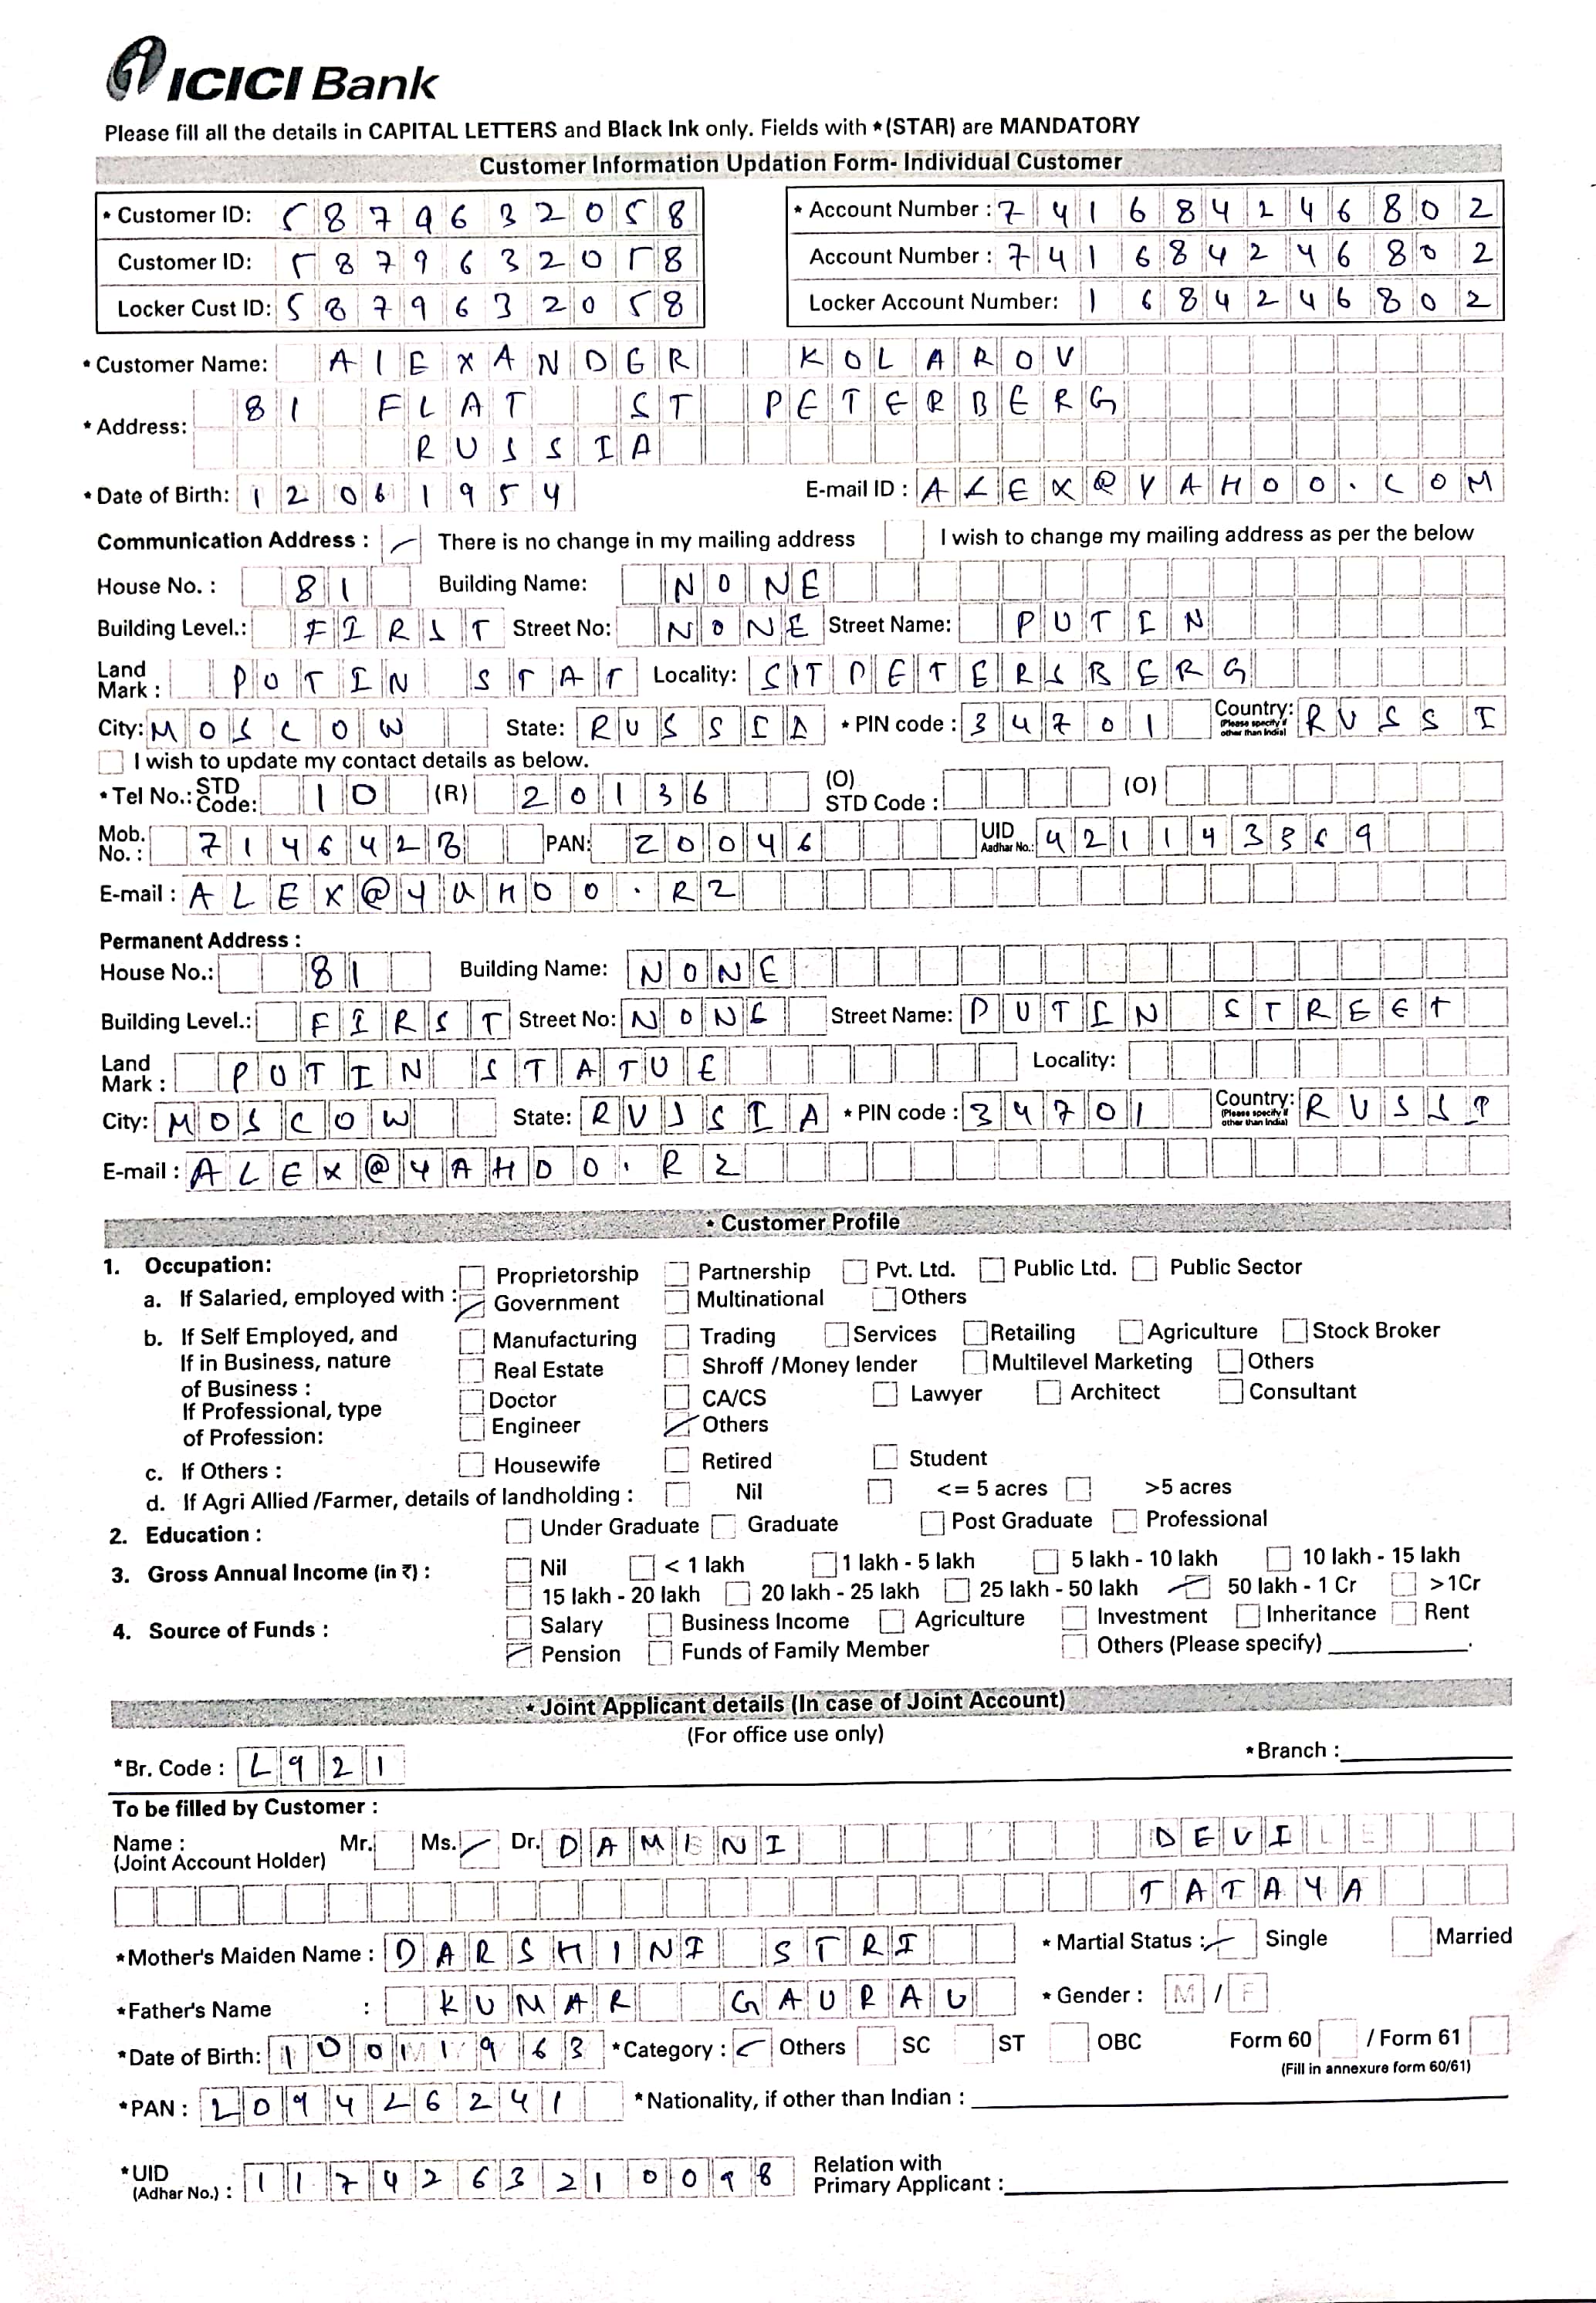 ICICI Bank
Please fill all the details in CAPITAL LETTERS and Black Ink only. Fields with *(STAR) are MANDATORY
Customer Information Updation Form- Individual Customer
* Customer ID: 5879632058 * Account Number : 741684246802
Customer ID: 5879632058 Account Number : 741684246802
Locker Cust ID: 5879632058 Locker Account Number: 1684246802
* Customer Name: AlEXANDER KOLAROV
81 FLAT ST PETERBERG
* Address:
RUSSIA
* Date of Birth: 12061954 E-mail ID : ALEX@YAHOO.COM
Communication Address : There is no change in my mailing address I wish to change my mailing address as per the below
House No. : 81 Building Name: NONE
Building Level.: FIRST Street No: NONE Street Name: PUTIN
Land Mark : POTIN STAT Locality: SITPETERSBERG
City: MOSCOW State: RUSSIA * PIN code : 34701 Country: (Please specify if other than India) RUSSI
I wish to update my contact details as below.
* Tel No.: STD Code: 10 (R) 20136 (O) STD Code : (O)
Mob. No. : 7146428 PAN: 20046 UID Aadhar No.: 421143369
E-mail : ALEX@YAHOO.R2
Permanent Address :
House No.: 81 Building Name: NONE
Building Level.: FIRST Street No: NONE Street Name: PUTIN STREET
Land Mark : POTIN STATUE Locality:
City: MOSCOW State: RUSSIA * PIN code : 34701 Country: (Please specify if other than India) RUSSI
E-mail : ALEX@YAHOO.R2
* Customer Profile
1. Occupation:
a. If Salaried, employed with : Proprietorship Partnership Pvt. Ltd. Public Ltd. Public Sector
Government Multinational Others
b. If Self Employed, and Manufacturing Trading Services Retailing Agriculture Stock Broker
If in Business, nature Real Estate Shroff /Money lender Multilevel Marketing Others
of Business : Doctor CA/CS Lawyer Architect Consultant
If Professional, type Engineer Others
of Profession:
c. If Others : Housewife Retired Student
d. If Agri Allied /Farmer, details of landholding : Nil <= 5 acres >5 acres
2. Education : Under Graduate Graduate Post Graduate Professional
3. Gross Annual Income (in ₹) : Nil < 1 lakh 1 lakh - 5 lakh 5 lakh - 10 lakh 10 lakh - 15 lakh
15 lakh - 20 lakh 20 lakh - 25 lakh 25 lakh - 50 lakh 50 lakh - 1 Cr >1Cr
4. Source of Funds : Salary Business Income Agriculture Investment Inheritance Rent
Pension Funds of Family Member Others (Please specify)
* Joint Applicant details (In case of Joint Account)
(For office use only)
*Br. Code : L921 * Branch :
To be filled by Customer :
Name : (Joint Account Holder) Mr. Ms. Dr. DAMINI DEVI
TATAYA
*Mother's Maiden Name : DARSHINI STRI * Martial Status : Single Married
*Father's Name : KUMAR GAURAV * Gender : M / F
*Date of Birth: 10011963 *Category : Others SC ST OBC Form 60 / Form 61
(Fill in annexure form 60/61)
*PAN : 209426241 *Nationality, if other than Indian :
*UID (Adhar No.) : 1174263210098 Relation with Primary Applicant :